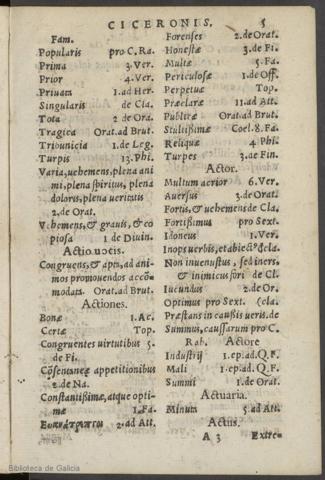 CICERONIS. 5
Fam.
Popularis pro C.Ra.
Prima 3.Ver.
Prior 4.Ver.
Priuata 1.ad Her.
Singularis de Cla.
Tota 2 de Ora.
Tragica Orat.ad Brut.
Tribunicia 1.de Leg.
Turpis 13.Phi.
Varia, uehemens, plena ani
mi, plena spiritus, plena
doloris, plena ueritatis
2.de Orat.
Vehemens, & grauis, & co
piosa 1 de Diuin.
Actio uocis.
Congruens, & apta, ad ani
mos promouendos accõ=
modata Orat.ad Brut.
Actiones.
Bonæ 1.Ac.
Certæ Top.
Congruentes uirtutibus 5.
de Fi.
Cõsentaneæ appetitionibus
2.de Na.
Constantißimæ, atque opti=
mæ 1.Fa.
2.ad Att.
Forenses 2.de Orat.
Honestæ 3.de Fi.
Multæ 5.Fa.
Periculosæ 1.de Off.
Perpetuæ Top.
Præclaræ 11.ad Att.
Publicæ Orat.ad Brut.
Stultißimæ Coel.8.Fa.
Reliquæ 4 Phi.
Turpes 3.de Fin.
Actor.
Multum acrior 6.Ver.
Auersus 3.de Orat.
Fortis, & uehemens de Cla.
Fortißimus pro Sext.
Idoneus 1.Ver.
Inops uerbis, et abiectꝰ de cla.
Non inuenustus, sed iners.
& inimicus fori de Cl.
Iucundus 2.de Or.
Optimus pro Sext. (cla.
Præstans in caußis ueris.de
Summus, caussarum pro C.
Rab. Actore
Industrij 1.ep.ad.Q.F.
Mali 1.ep.ad.Q.F.
Summi 1.de Orat.
Actuaria.
Minuta 5.ad Att.
Actus.
A 3 Extre=
Biblioteca de Galicia